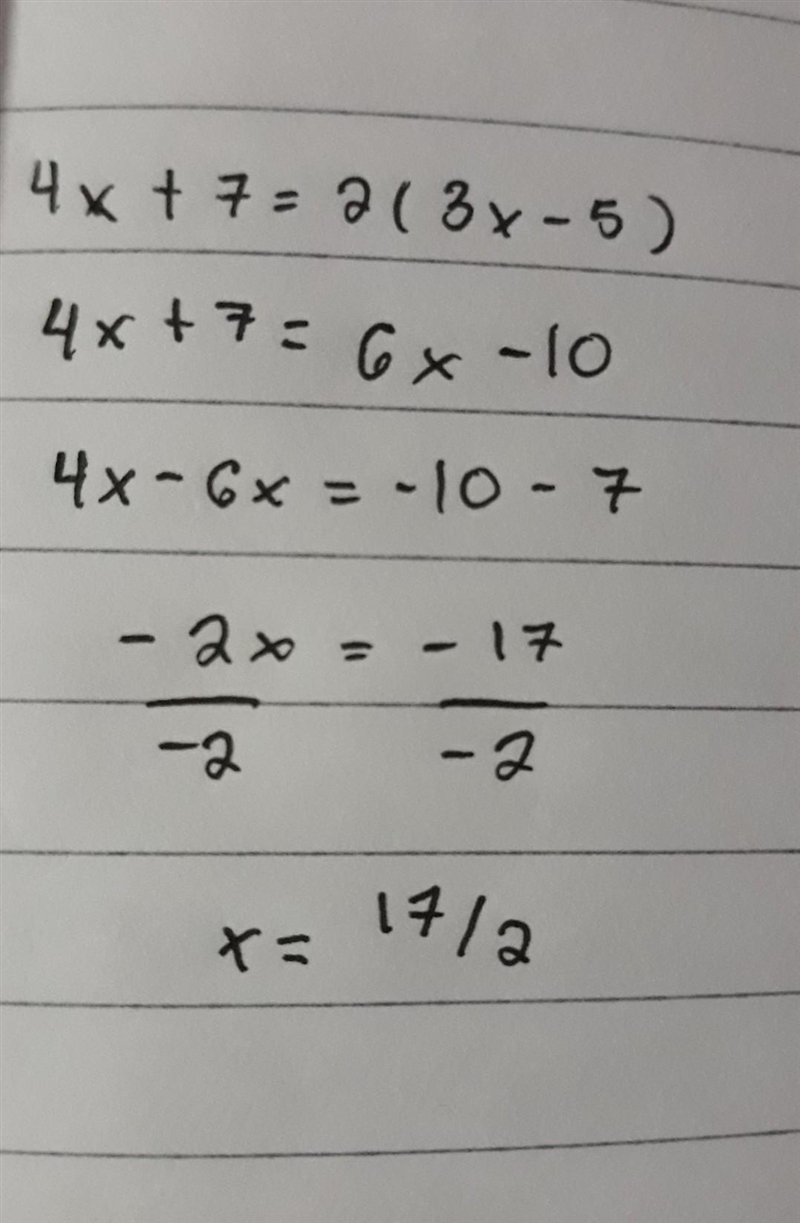 4x + 7 = 2(3x - 5)
4x + 7 = 6x - 10
4x - 6x = -10 - 7
-2x = -17
-2 -2
x = 17/2